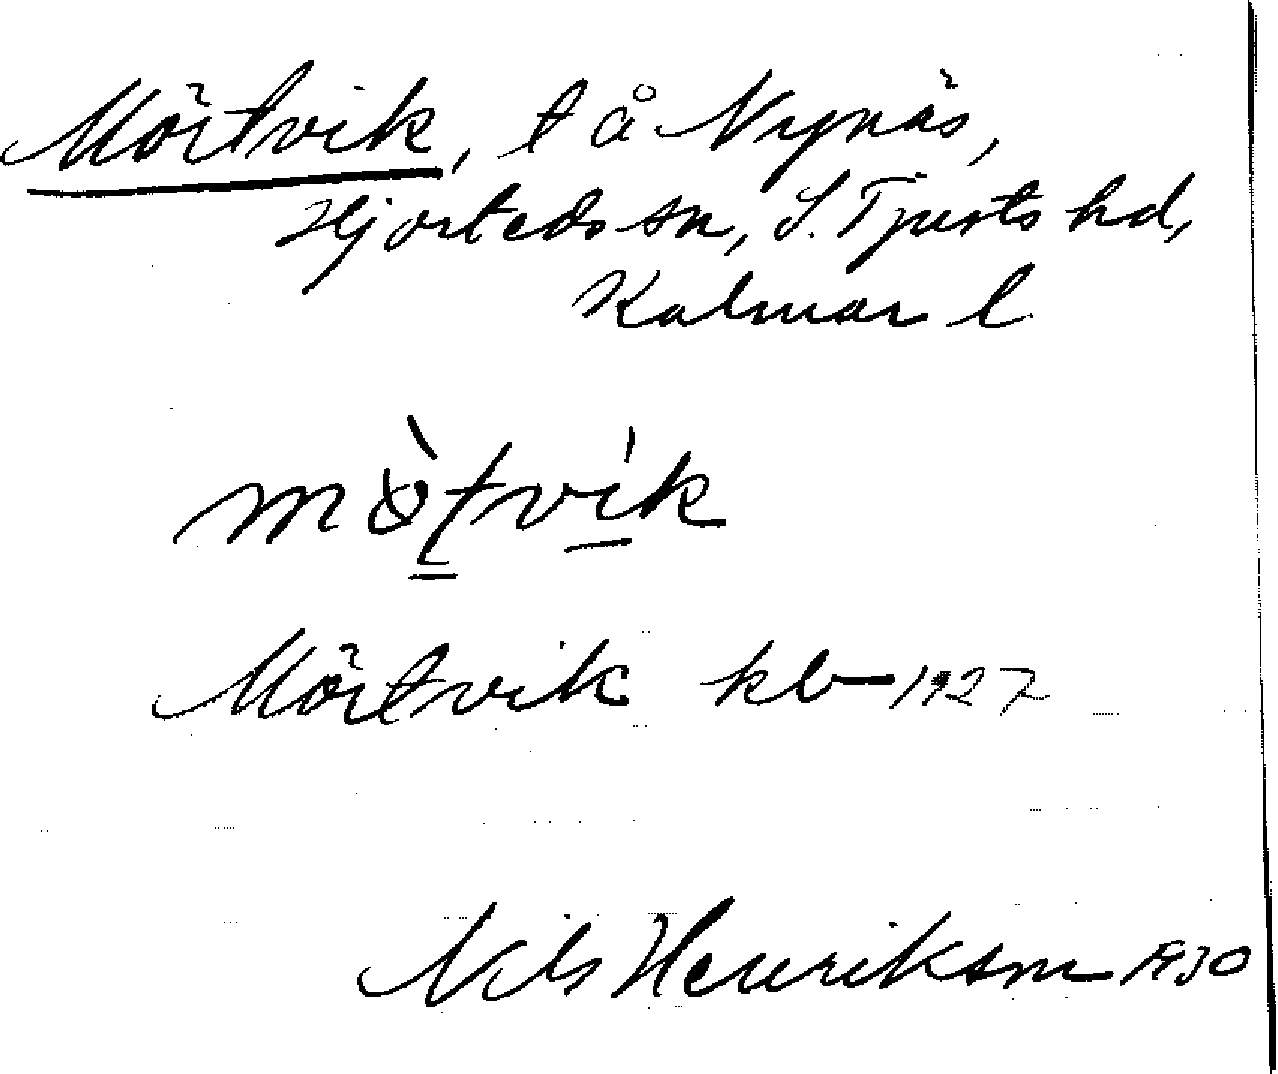 Mörtvik, t å Nynäs,
Hjorteds sn, S. Tjusts hd,
Kalmar l
Mörtvik kb 1927
Nils Henrikson 1930